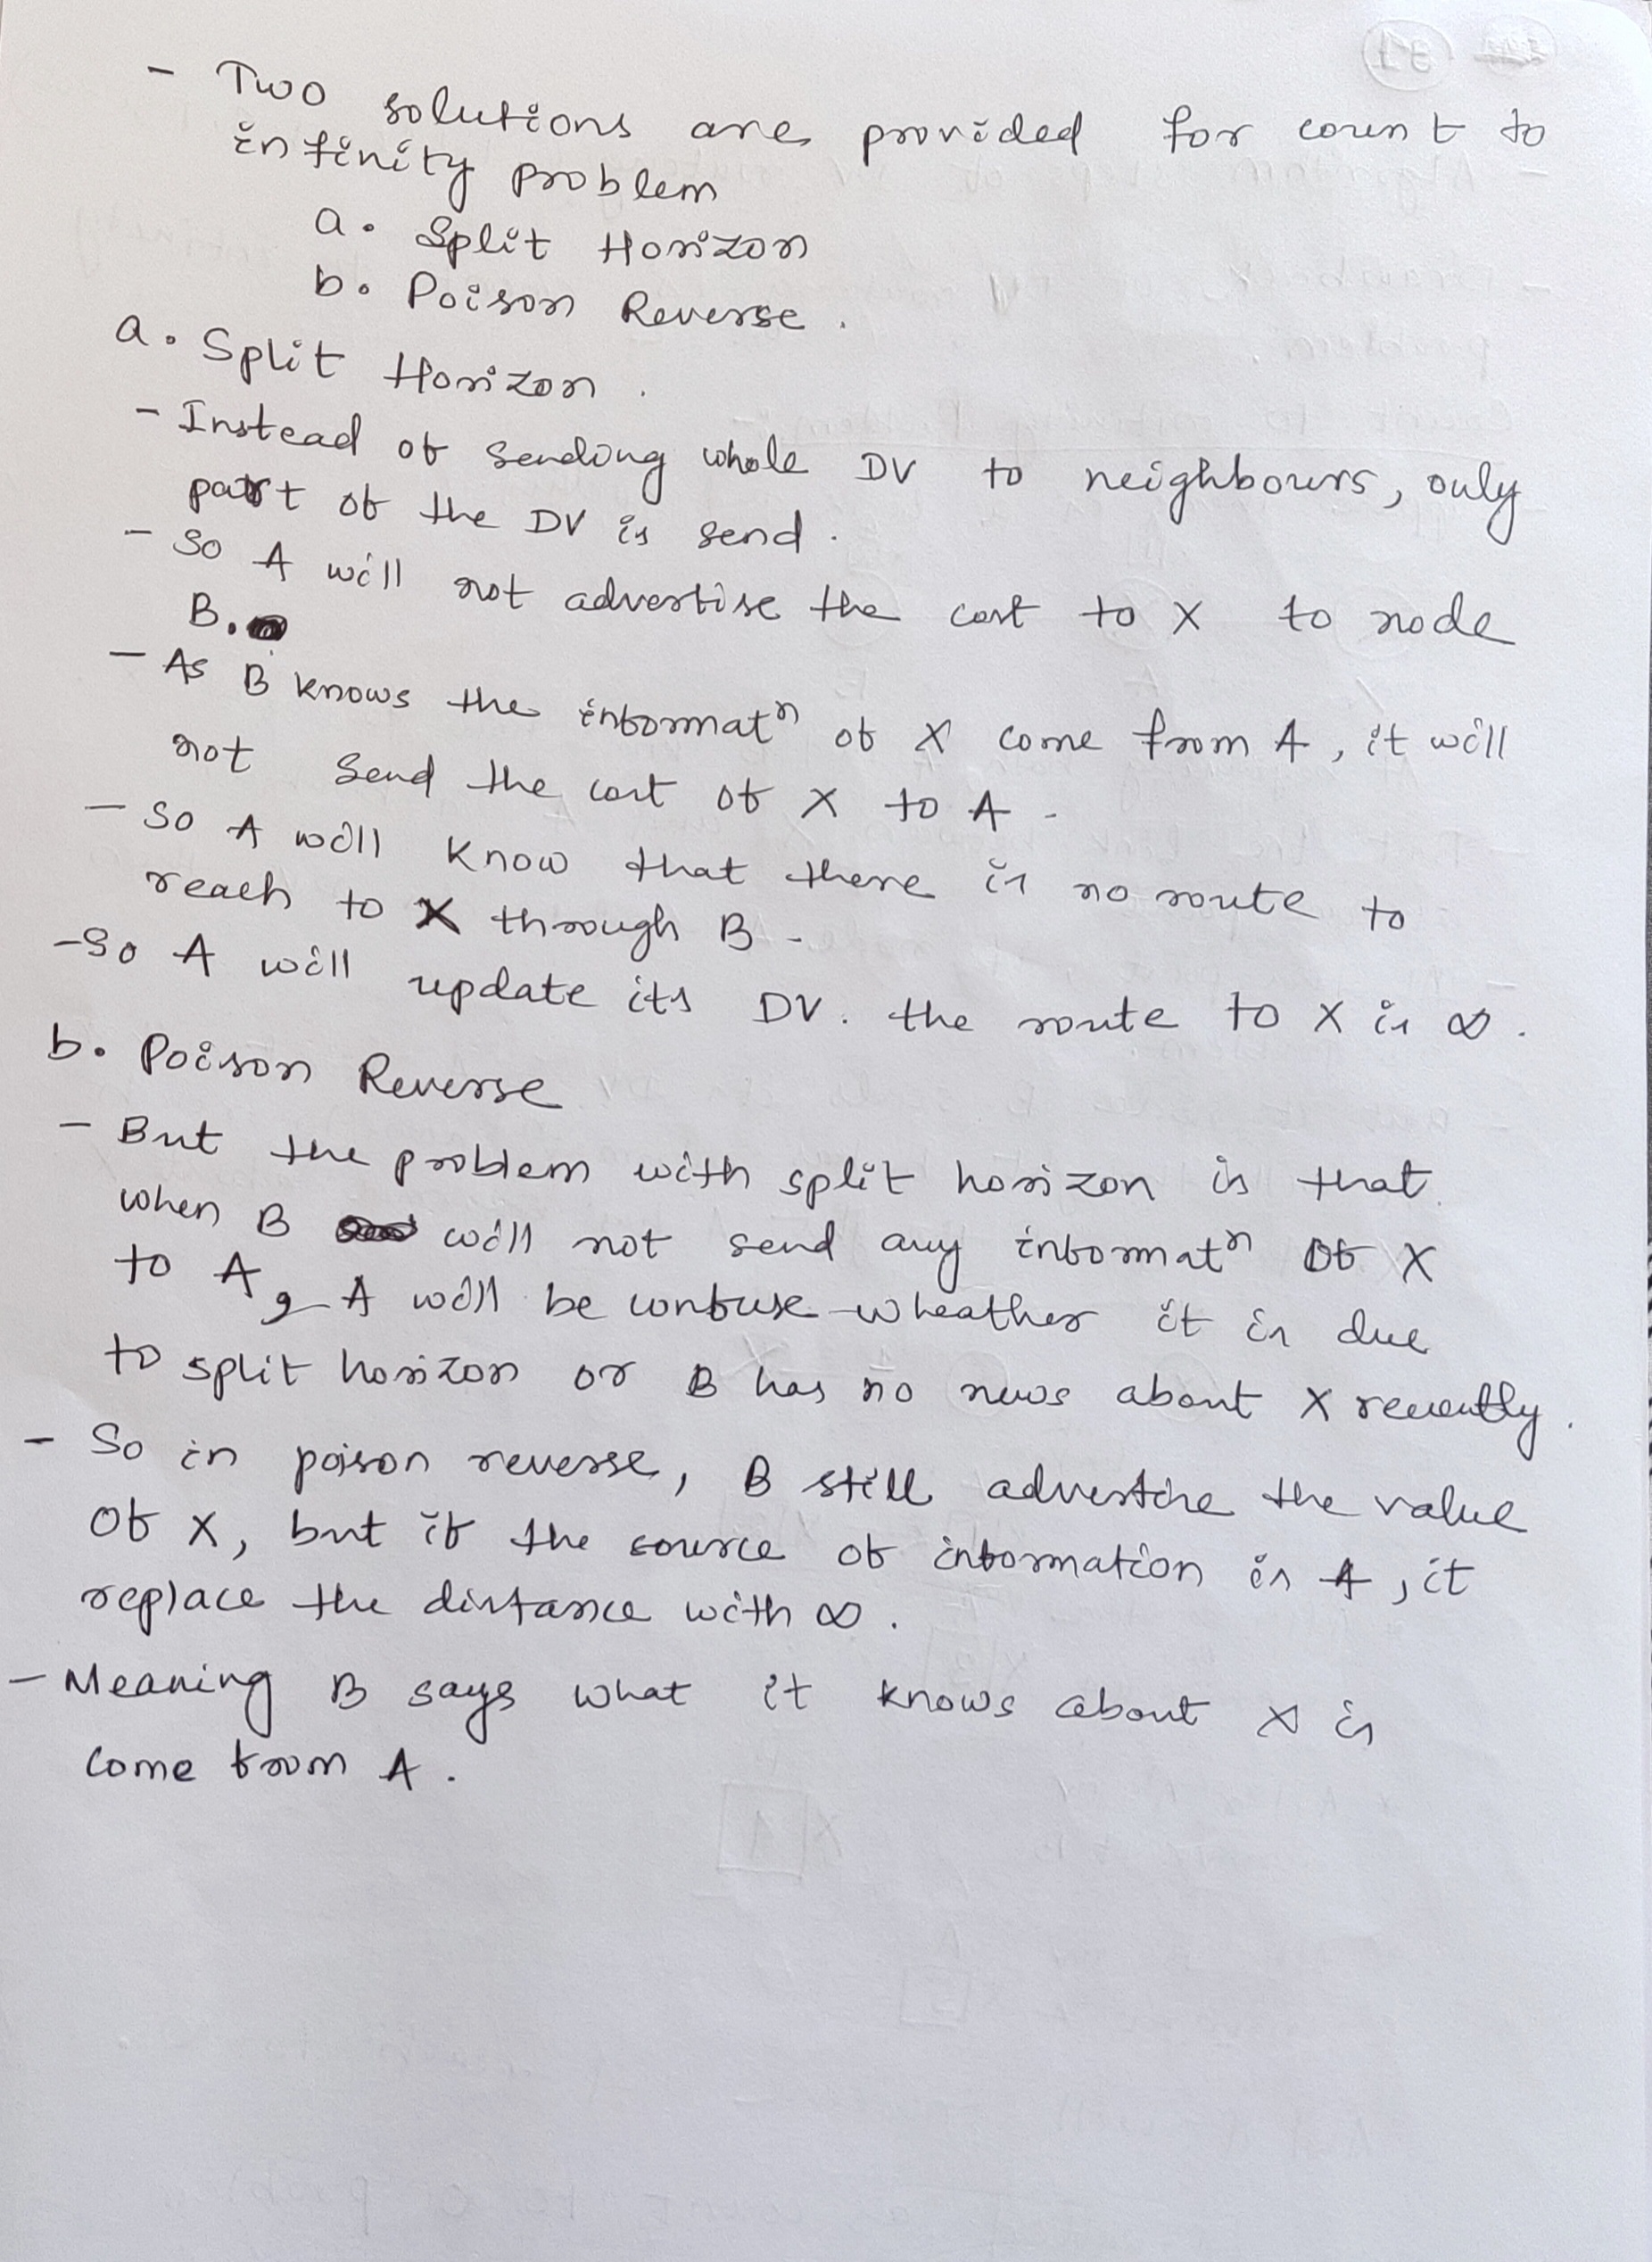 - Two solutions are provided for count to
infinity problem
a. Split Horizon
b. Poison Reverse.
a. Split Horizon.
- Instead of sending whole DV to neighbours, only
part of the DV is send.
- So A will not advertise the cost to X to node
B.
- As B knows the informatn of X come from A, it will
not send the cost of X to A.
- So A will know that there is no route to
reach to X through B.
- So A will update its DV. the route to X is ∞.
b. Poison Reverse
- But the problem with split horizon is that
when B will not send any informatn of X
to A, A will be confuse wheather it is due
to split horizon or B has no news about X recently.
- So in poison reverse, B still advertise the value
of X, but if the source of information is A, it
replace the distance with ∞.
- Meaning B says what it knows about X is
come from A.